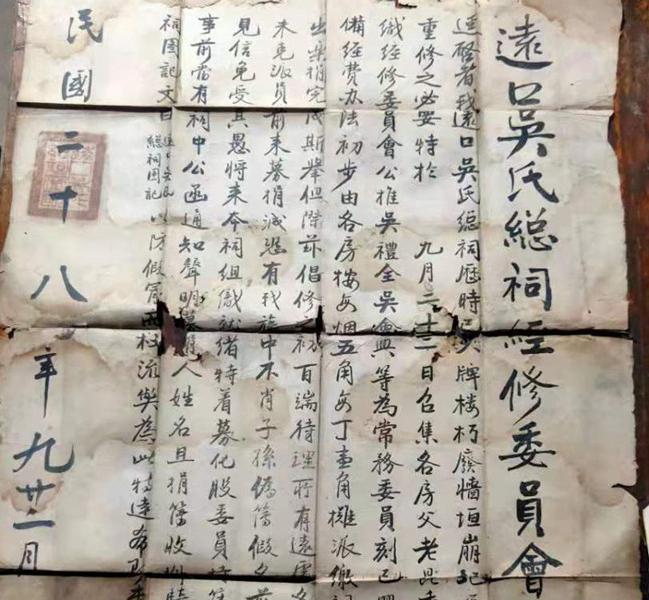 遠口吳氏総祠經修委員會
逕啓者我遠口吳氏総祠歷時 牌楼朽廢牆垣崩圮
重修之必要特於 九月二十二日召集各房父老
織經修委員會公推吳禮全吳會興等為常務委員刻已
備經費办法初步由各房按每烟五角每丁壹角攤派繳祠
出樂捐完成斯舉但際茲倡修之初百端待理所有遠
未克派員前來募捐誠恐有我族中不肖子孫偽簿假名
見信免受其愚將来本祠組織就緒特着募化股委員
事前當有祠中公函通知聲明 人姓名且捐簿收
祠圖記文曰遠口吳氏総祠圖記以防假冒而杜流弊為此特達希
民國二十八年九廿二月